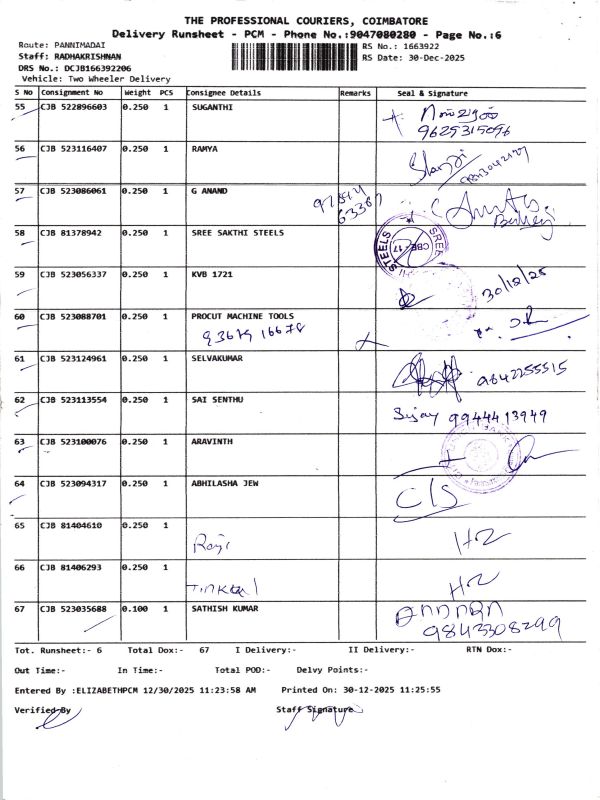 THE PROFESSIONAL COURIERS, COIMBATORE
Delivery Runsheet - PCM - Phone No.:9047080280 - Page No.:6
Route: PANNIMADAI
RS No.: 1663922
Staff: RADHAKRISHNAN
RS Date: 30-Dec-2025
DRS No.: DCJB166392206
Vehicle: Two Wheeler Delivery
S No Consignment No Weight PCS Consignee Details Remarks Seal & Signature
55 CJB 522896603 0.250 1 SUGANTHI
9629315096
56 CJB 523116407 0.250 1 RAMYA
57 CJB 523086061 0.250 1 G ANAND
58 CJB 81378942 0.250 1 SREE SAKTHI STEELS
SREE STEELS CBE - 17
59 CJB 523056337 0.250 1 KVB 1721
30/12/25
60 CJB 523088701 0.250 1 PROCUT MACHINE TOOLS
93679 16678
61 CJB 523124961 0.250 1 SELVAKUMAR
9842255515
62 CJB 523113554 0.250 1 SAI SENTHU
Sujay 9944413949
63 CJB 523100076 0.250 1 ARAVINTH
64 CJB 523094317 0.250 1 ABHILASHA JEW
C/S
65 CJB 81404610 0.250 1
Raji
66 CJB 81406293 0.250 1
67 CJB 523035688 0.100 1 SATHISH KUMAR
9843308299
Tot. Runsheet:- 6 Total Dox:- 67 I Delivery:- II Delivery:- RTN Dox:-
Out Time:- In Time:- Total POD:- Delvy Points:-
Entered By :ELIZABETHPCM 12/30/2025 11:23:58 AM Printed On: 30-12-2025 11:25:55
Verified By Staff Signature